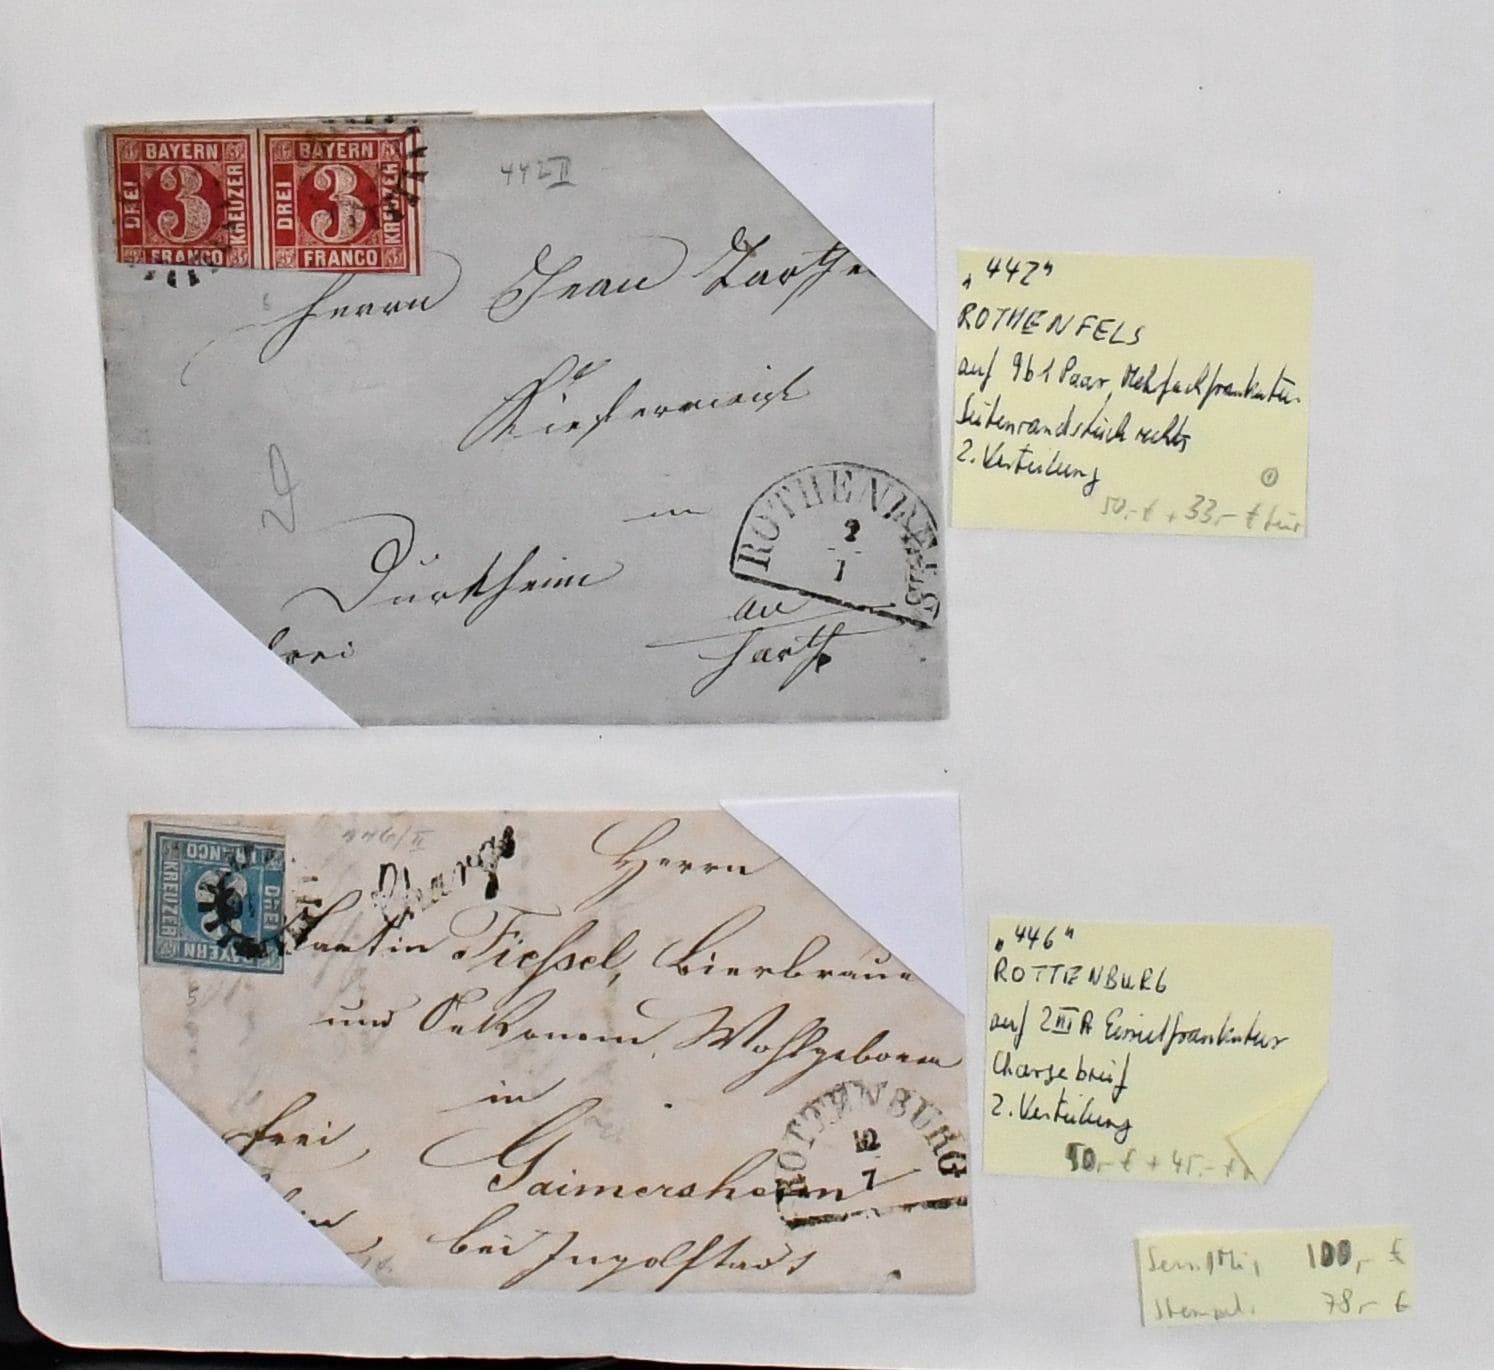 BAYERN
DREI
3
KREUZER
FRANCO
BAYERN
DREI
3
KREUZER
FRANCO
442 II
Herrn Jean Barthe
in
Dürkheim
ROTHENFELS
2
1
an
Harth
frei
"442"
ROTHENFELS
auf 9b1 Paar, Mehrfachfrankatur
Seitenrandstück rechts
2. Verteilung
50,-€ + 33,-€ für
FRANCO
KREUZER
DREI
BAYERN
446/II
Chargé
Herrn
Martin Fiessel, Bierbrauer
und Oekonom, Wohlgeboren
in
frei
Gaimersheim
bei Ingolstadt
ROTTENBURG
12
7
"446"
ROTTENBURG
auf 2IIIA Einzelfrankatur
Chargebrief
2. Verteilung
50,-€ + 45,-
100,- €
Stempel: 78,- €